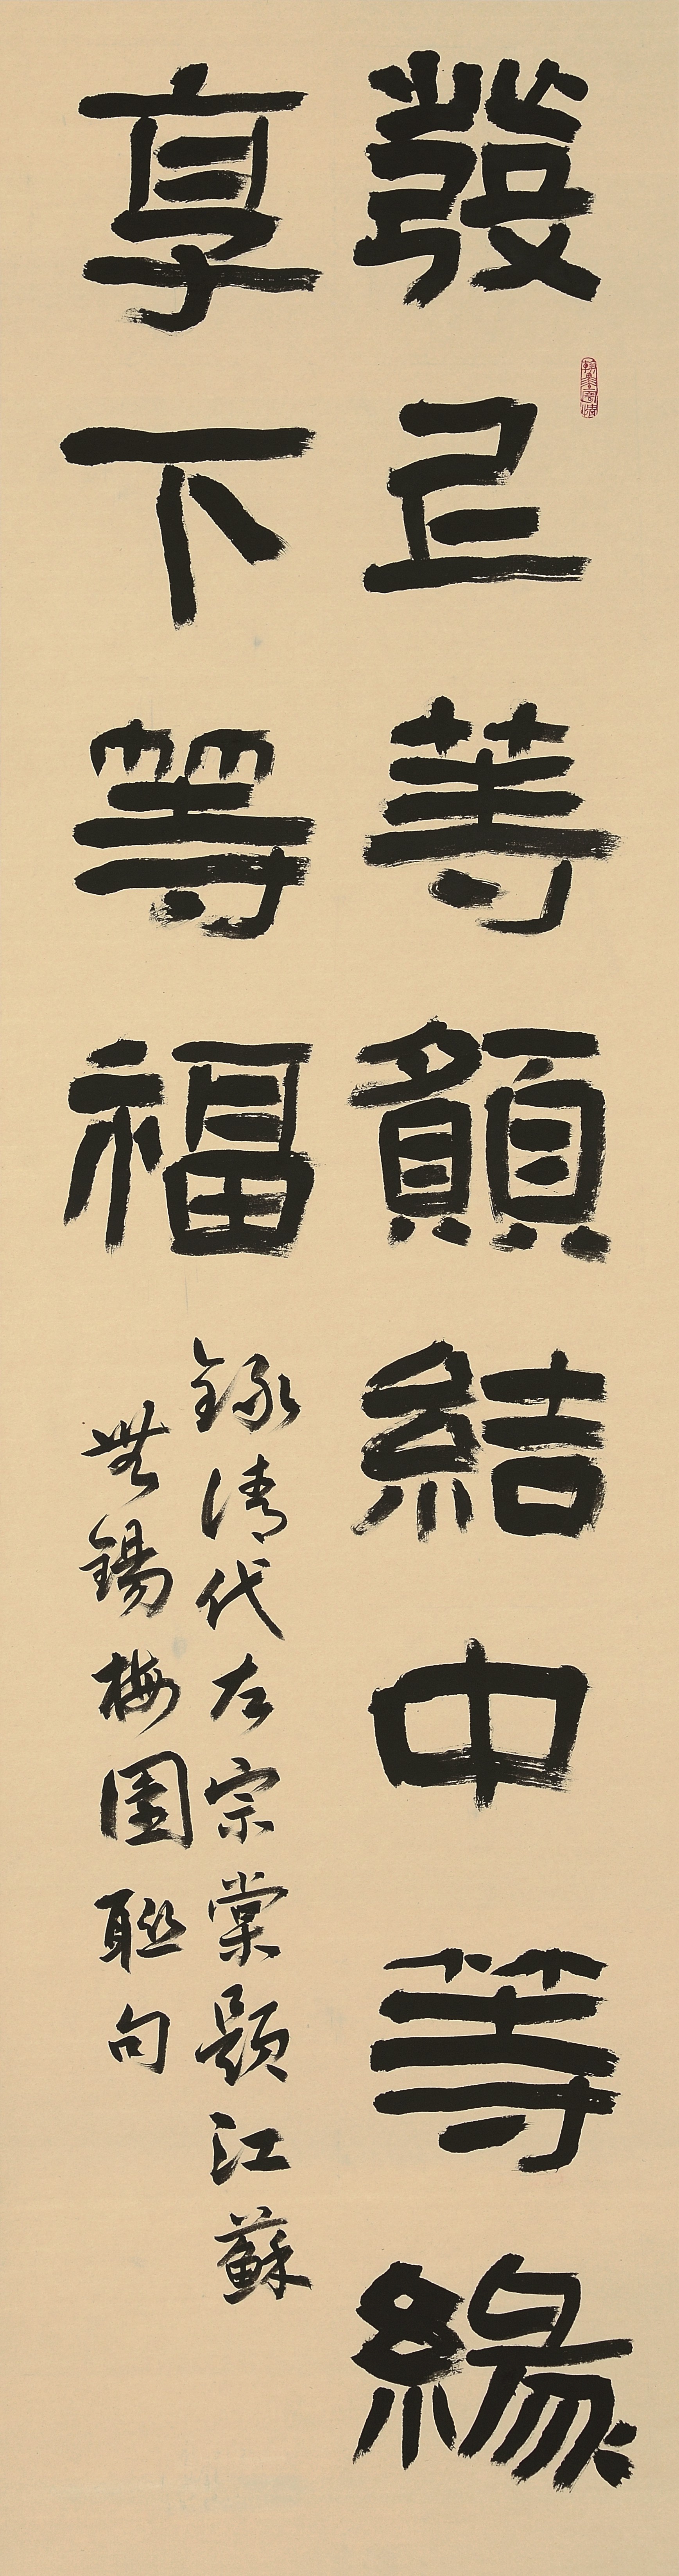 發上等願結中等緣
享下等福
錄清代左宗棠題江蘇
無錫梅園聯句